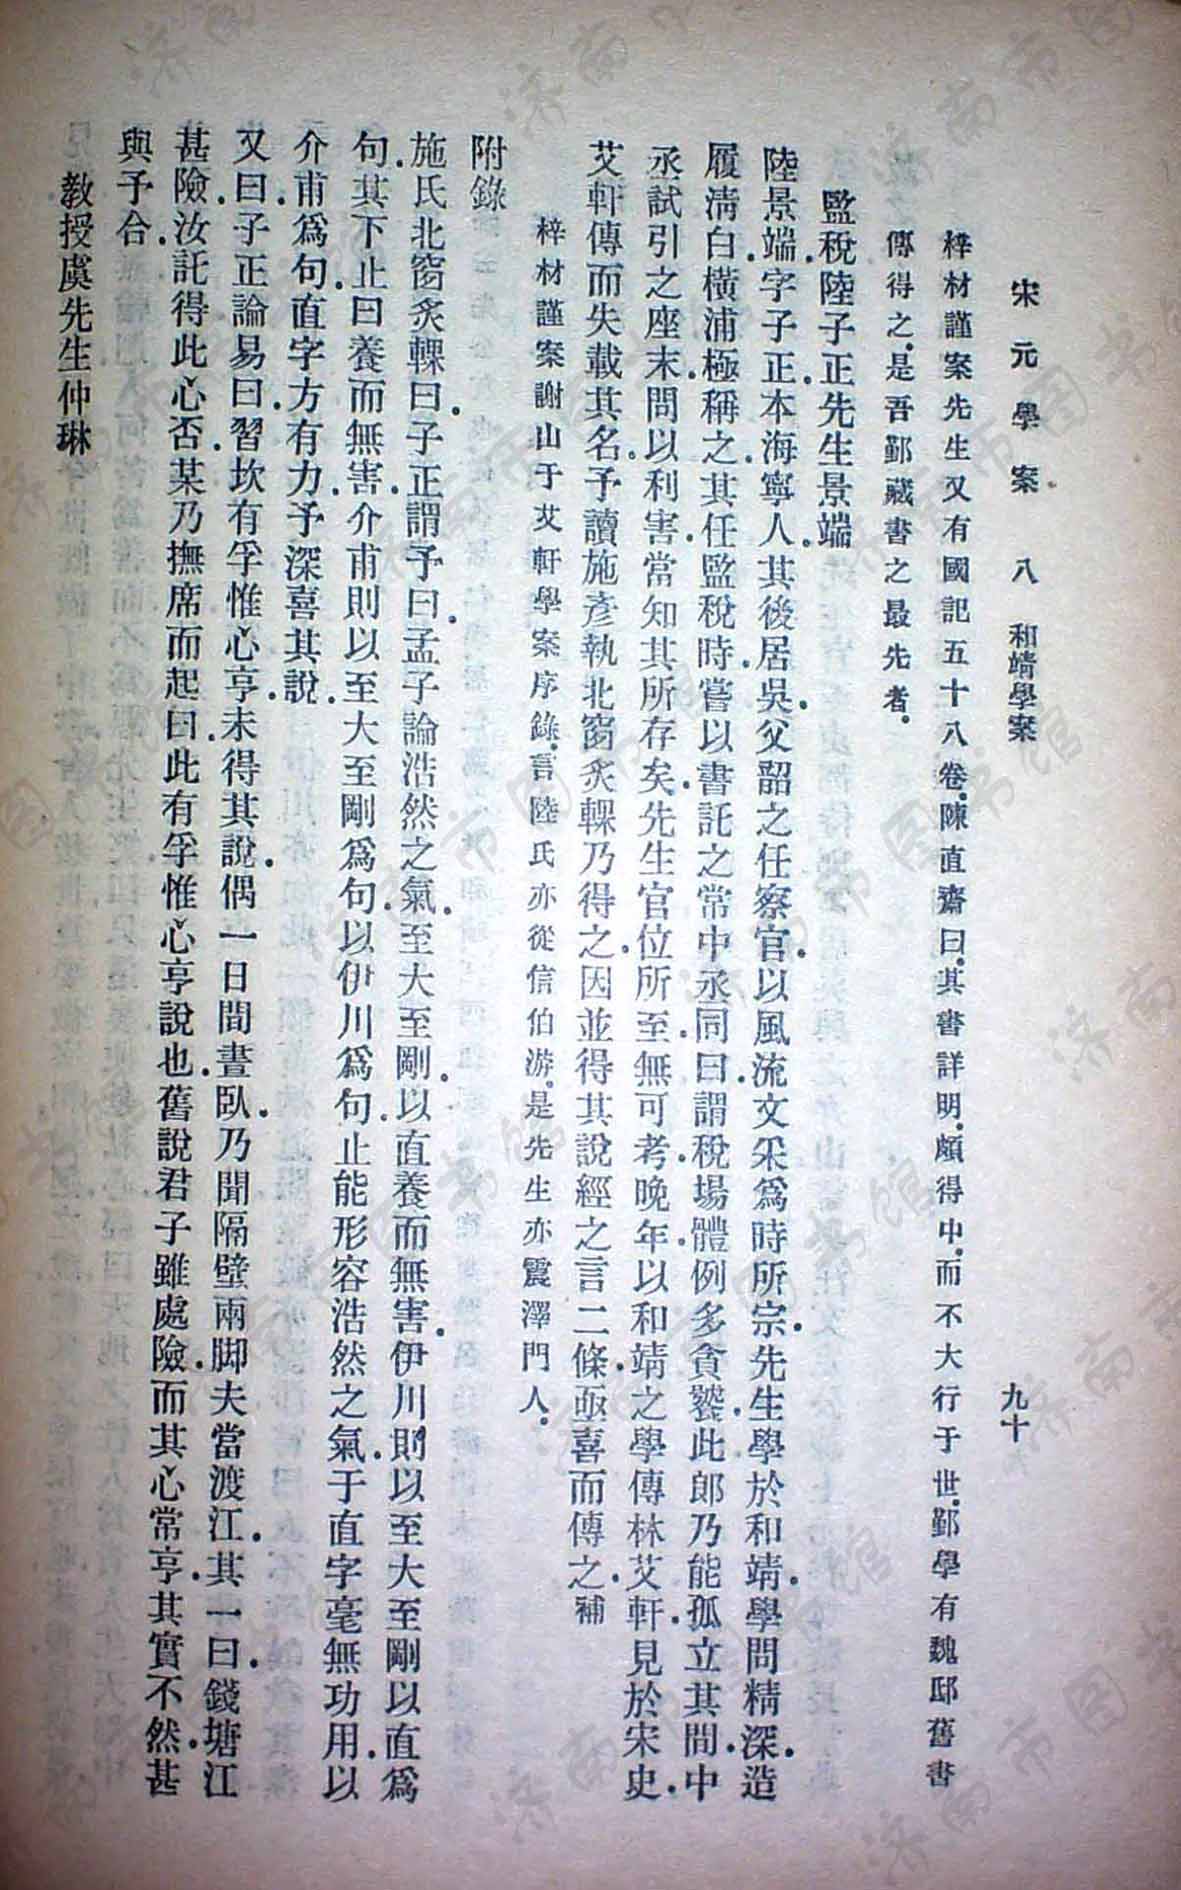 宋元學案 八 和靖學案 九十
梓材謹案先生又有國記五十八卷.陳直齋曰.其書詳明.頗得中.而不大行于世.鄞學有魏邸舊書
傳得之.是吾鄞藏書之最先者.
監稅陸子正先生景端
陸景端.字子正.本海寧人.其後居吳.父韶之任察官.以風流文采爲時所宗.先生學於和靖.學問精深.造
履淸白.橫浦極稱之.其任監稅時.嘗以書託之常中丞同曰.謂稅場體例多貪饕.此郞乃能孤立其間.中
丞試引之座末.問以利害.當知其所存矣.先生官位所至無可考.晚年.以和靖之學傳林艾軒.見於宋史.
艾軒傳而失載其名.予讀施彥執北窗炙輠乃得之.因並得其說經之言二條.亟喜而傳之.補
梓材謹案謝山于艾軒學案序錄.言陸氏亦從信伯游.是先生亦震澤門人.
附錄
施氏北窗炙輠曰.子正謂予曰.孟子論浩然之氣.至大至剛.以直養而無害.伊川.則以至大至剛以直爲
句.其下止曰養而無害.介甫則以至大至剛爲句.以伊川爲句.止能形容浩然之氣.于直字毫無功用.以
介甫爲句.直字方有力.予深喜其說.
又曰.子正論易曰.習坎有孚惟心亨.未得其說.偶一日間晝臥.乃聞隔壁兩脚夫當渡江.其一曰.錢塘江
甚險.汝託得此心否.某乃撫席而起曰.此有孚惟心亨說也.舊說君子雖處險.而其心常亨.其實不然.甚
與予合.
教授虞先生仲琳